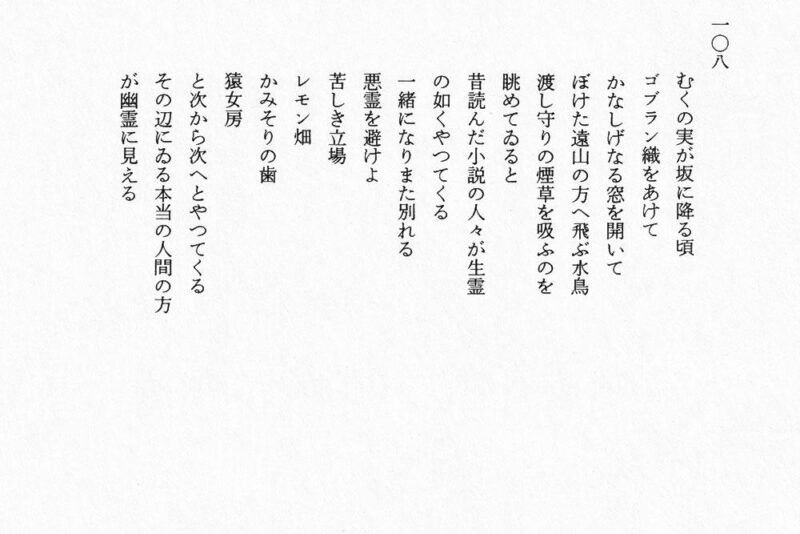 一〇八
むくの実が坂に降る頃
ゴブラン織をあけて
かなしげなる窓を開いて
ぼけた遠山の方へ飛ぶ水鳥
渡し守りの煙草を吸ふのを
眺めてゐると
昔読んだ小説の人々が生霊
の如くやつてくる
一緒になりまた別れる
悪霊を避けよ
苦しき立場
レモン畑
かみそりの歯
猿女房
と次から次へとやつてくる
その辺にゐる本当の人間の方
が幽霊に見える